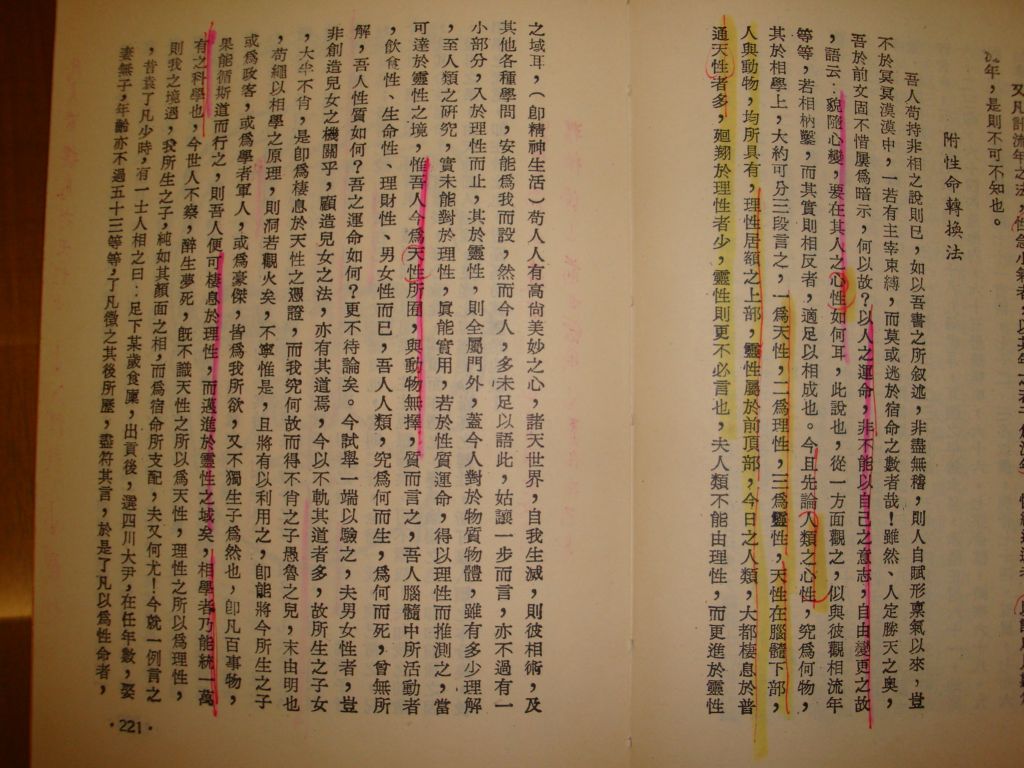 又凡計流年之法，
年，是則不可不知也。
附性命轉換法
吾人苟持非相之說則已，如以吾書之所叙述，非盡無稽，則人自賦形稟氣以來，豈
不於冥冥漠漠中，一若有主宰束縛，而莫或逃於宿命之數者哉！雖然、人定勝天之奧，
吾於前文固不惜屢爲暗示，何以故？以人之運命，非不能以自己之意志，自由變更之故
，語云：貌隨心變，要在其人之心性如何耳，此說也，從一方面觀之，似與彼觀相流年
等等，若相枘鑿，而其實則相反者，適足以相成也。今且先論人類之心性，究爲何物，
其於相學上，大約可分三段言之，一爲天性，二爲理性，三爲靈性，天性在腦髓下部，
人與動物，均所具有，理性居額之上部，靈性屬於前頂部，今日之人類，大都棲息於普
通天性者多，廻翔於理性者少，靈性則更不必言也，夫人類不能由理性，而更進於靈性
之域耳，（卽精神生活）苟人人有高尙美妙之心，諸天世界，自我生滅，則彼相術，及
其他各種學問，安能爲我而設，然而今人，多未足以語此，姑讓一步而言，亦不過有一
小部分，入於理性而止，其於靈性，則全屬門外，蓋今人對於物質物體，雖有多少理解
，至人類之硏究，實未能對於理性，眞能實用，若於性質運命，得以理性而推測之，當
可達於靈性之境，惟吾人今爲天性所囿，與動物無擇，質而言之，吾人腦髓中所活動者
，飮食性、生命性、理財性、男女性而已，吾人人類，究爲何而生，爲何而死，曾無所
解，吾人性質如何？吾之運命如何？更不待論矣。今試舉一端以驗之，夫男女性者，豈
非創造兒女之機關乎，顧造兒女之法，亦有其道焉，今以不軌其道者多，故所生之子女
，大半不肖，是卽爲棲息於天性之憑證，而我究何故而得不肖之子愚魯之兒，末由明也
，苟繩以相學之原理，則洞若觀火矣，不寧惟是，且將有以利用之，卽能將今所生之子
或爲政客，或爲學者軍人，或爲豪傑，皆爲我所欲，又不獨生子爲然也，卽凡百事物，
果能循斯道而行之，則吾人便可棲息於理性，而邁進於靈性之域矣，相學者乃能統一萬
有之科學也，今世人不察，醉生夢死，旣不識天性之所以爲天性，理性之所以爲理性，
則我之境遇，我所生之子，純如其顏面之相，而爲宿命所支配，夫又何尤！今就一例言之
，昔袁了凡少時，有一士人相之曰：足下某歲食廩，出貢後，選四川大尹，在任年數，娶
妻無子，年齡亦不過五十三等等，了凡徵之其後所歷，盡符其言，於是了凡以爲性命者，
·221·